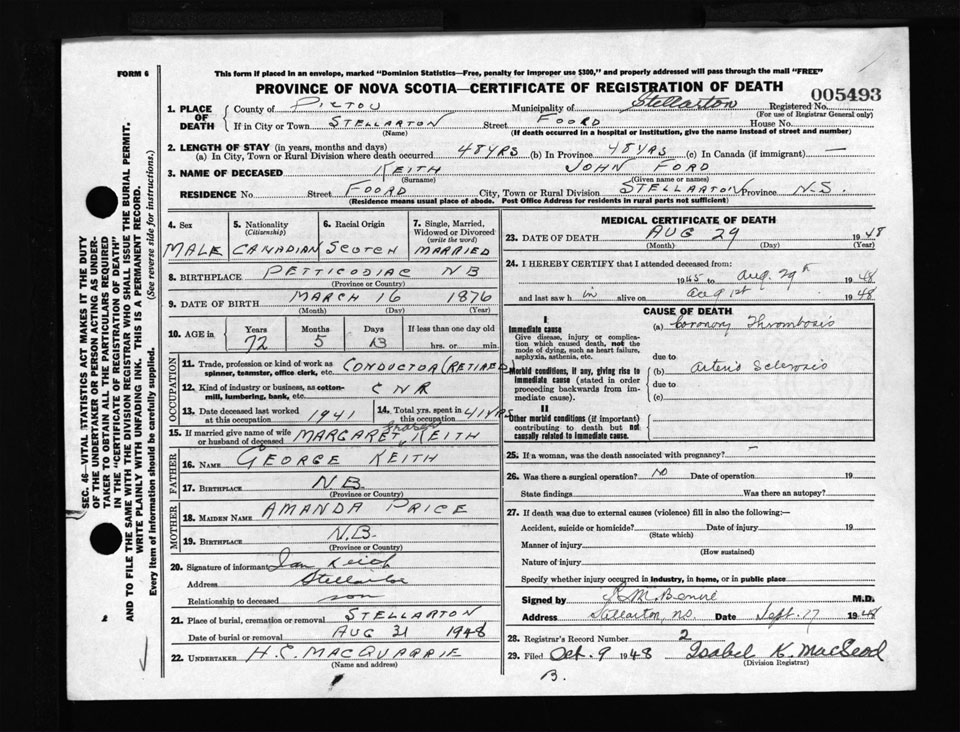 FORM 6
This form if placed in an envelope, marked "Dominion Statistics—Free, penalty for improper use $300," and properly addressed will pass through the mail "FREE"
PROVINCE OF NOVA SCOTIA—CERTIFICATE OF REGISTRATION OF DEATH
005493
1. PLACE OF DEATH
County of PICTOU Municipality of Stellarton Registered No.
(For use of Registrar General only)
If in City or Town STELLARTON Street FOORD House No.
(Name) (If death occurred in a hospital or institution, give the name instead of street and number)
2. LENGTH OF STAY (in years, months and days)
(a) In City, Town or Rural Division where death occurred 48 YRS (b) In Province 48 YRS (c) In Canada (if immigrant) —
3. NAME OF DECEASED KEITH JOHN FORD
(Surname) (Given name or names)
RESIDENCE No. Street FOORD City, Town or Rural Division STELLARTON Province N.S.
(Residence means usual place of abode. Post Office Address for residents in rural parts not sufficient)
4. Sex 5. Nationality (Citizenship) 6. Racial Origin 7. Single, Married, Widowed or Divorced (write the word)
MALE CANADIAN SCOTCH MARRIED
8. BIRTHPLACE PETTICODIAC NB
(Province or Country)
9. DATE OF BIRTH MARCH 16 1876
(Month) (Day) (Year)
10. AGE in Years Months Days If less than one day old
72 5 13 hrs. or min.
OCCUPATION
11. Trade, profession or kind of work as spinner, teamster, office clerk, etc. CONDUCTOR (RETIRED)
12. Kind of industry or business, as cotton-mill, lumbering, bank, etc. CNR
13. Date deceased last worked at this occupation 1941 14. Total yrs. spent in this occupation 41 YRS
15. If married give name of wife or husband of deceased MARGARET Fraser KEITH
FATHER
16. NAME GEORGE KEITH
17. BIRTHPLACE N.B.
(Province or Country)
MOTHER
18. MAIDEN NAME AMANDA PRICE
19. BIRTHPLACE N.B.
(Province or Country)
20. Signature of informant Ian Keith
Address Stellarton
Relationship to deceased son
21. Place of burial, cremation or removal STELLARTON
Date of burial or removal AUG 31 1948
22. UNDERTAKER H.C. MACQUARRIE
(Name and address)
MEDICAL CERTIFICATE OF DEATH
23. DATE OF DEATH AUG 29 1948
(Month) (Day)
24. I HEREBY CERTIFY that I attended deceased from:
1945 Aug. 29th 1948
and last saw h im alive on Aug 1st 1948
CAUSE OF DEATH
I
Immediate cause
Give disease, injury or complication which caused death, not the mode of dying, such as heart failure, asphyxia, asthenia, etc.
(a) Coronory Thrombosis
due to
Morbid conditions, if any, giving rise to immediate cause (stated in order proceeding backwards from immediate cause).
(b) Arterio Sclerosis
due to
(c)
II
Other morbid conditions (if important) contributing to death but not causally related to immediate cause.
25. If a woman, was the death associated with pregnancy? —
26. Was there a surgical operation? NO Date of operation 19
State findings Was there an autopsy?
27. If death was due to external causes (violence) fill in also the following:—
Accident, suicide or homicide? Date of injury 19
(State which)
Manner of injury
(How sustained)
Nature of injury
Specify whether injury occurred in industry, in home, or in public place
Signed by M.D.
Address Stellarton, N.S. Date Sept. 17 1948
28. Registrar's Record Number 2
29. Filed Oct. 9 1948 Isabel K. MacLeod
(Division Registrar)
B.
SEC. 46—VITAL STATISTICS ACT MAKES IT THE DUTY
OF THE UNDERTAKER OR PERSON ACTING AS UNDER-
TAKER TO OBTAIN ALL THE PARTICULARS REQUIRED
IN THE "CERTIFICATE OF REGISTRATION OF DEATH"
AND TO FILE THE SAME WITH THE DIVISION REGISTRAR WHO SHALL ISSUE THE BURIAL PERMIT.
WRITE PLAINLY WITH UNFADING INK. THIS IS A PERMANENT RECORD.
Every item of information should be carefully supplied. (See reverse side for instructions.)